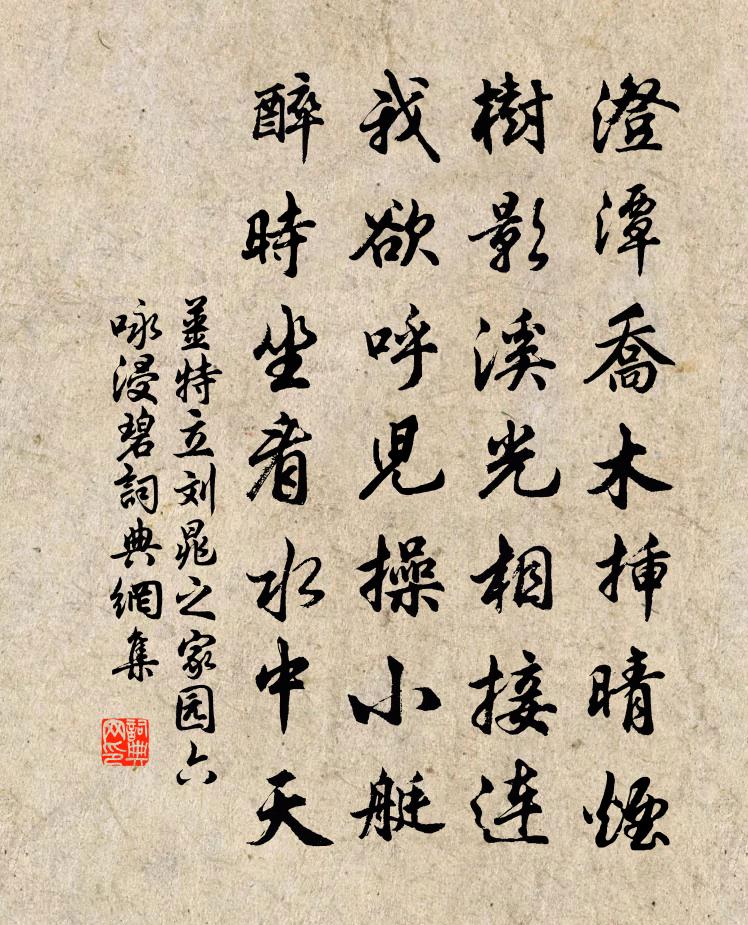 澄潭喬木揷晴煙
樹影溪光相接連
我欲呼児操小艇
醉時坐看水中天
薑特立刘晁之家园六
咏浸碧詞典網集
詞典网印